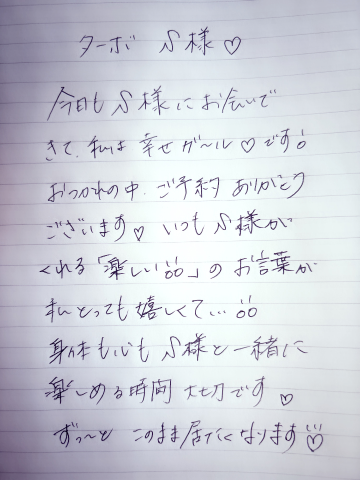 ターボ S様♡
今日も S様に お会いで
きて、私は 幸せガ〜ル♡です!
おつかれの中、ご予約 ありがとう
ございます♡ いつも S様が
くれる「楽しい」の お言葉が
私 とっても 嬉しくて...
身体も心も S様と 一緒に
楽しめる時間 大切です♡
ずっ〜と このまま居たくなります♡